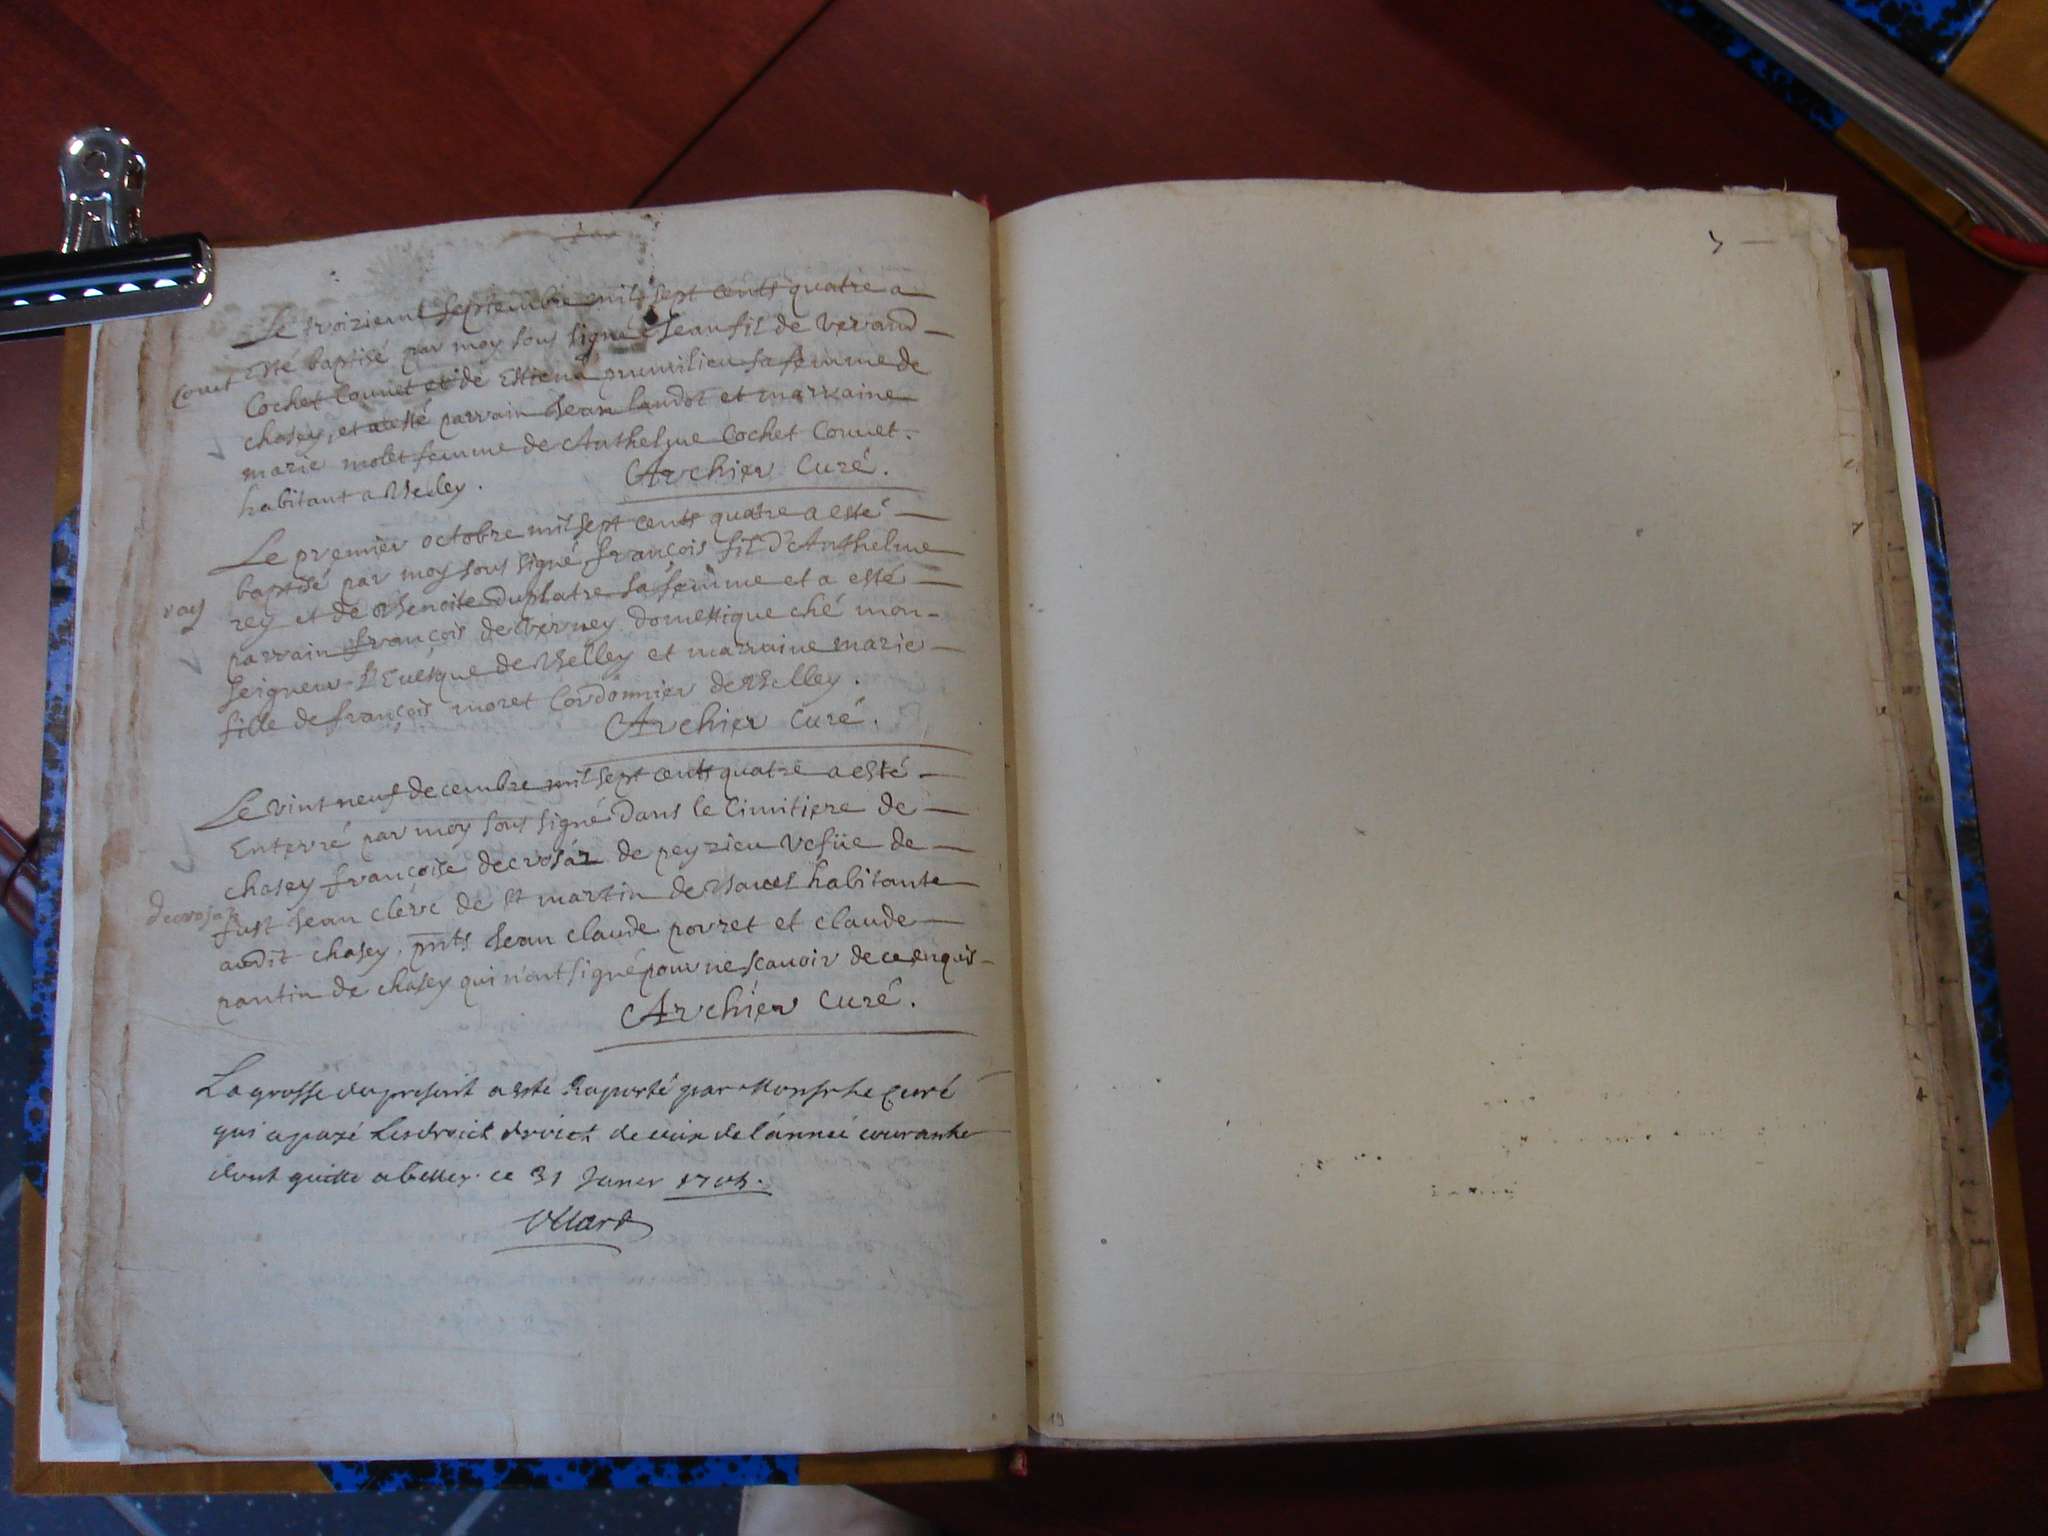 Le troizieme septembre mil sept cents quatre a
esté baptisé par moy sous signé Jean fil de
Conet
Cochet Connet et de Estiena sa femme de
chasey, et a esté parrain Jean et marraine
marie molet femme de Anthelme Cochet Connet.
habitant a Belley.
Archier Curé.
Le premier octobre mil sept cents quatre a esté
baptisé par moy sous signé françois fil d'Anthelme
rey
rey et de Benoite Duplatre sa femme et a esté
parrain françois de Verney domestique ché mon-
seigneur L'Evesque de Belley et marraine marie
fille de françois moret Cordonnier de Belley.
Archier Curé.
Le vint neuf decembre mil sept cents quatre a esté
Enterré par moy sous signé Dans le Cimitiere de
chasey françoise decrosaz de peyrieu vefüe de
decrosaz
fust Jean clerc de St martin de Bavel habitante
audit chasey. pnts Jean claude porret et claude
pantin de chasey qui n'ont signé pour ne scavoir de ce enquis
Archier Curé.
La grosse du present a esté Raporté par Monsr le Curé
qui a payé Les droict droict de de l'année courante
dont quitte a belley ce 31 Janer
19